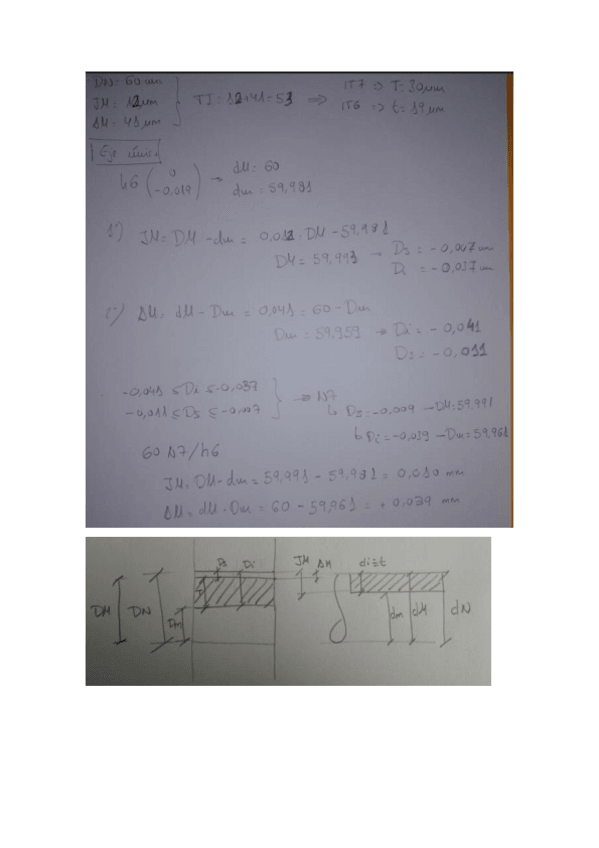 DN= 60 mm
JM= 12 μm } TJ= 12+41=53 ⇒ IT7 ⇒ T=30μm
AM= 41 μm IT6 ⇒ t=19μm
Eje
h6 (0 -0,019) → dM= 60
dm= 59,981
1º) JM= DM - dm = 0,012 = DM - 59,981
DM= 59,993 → Ds = -0,007 mm
Di = -0,037 mm
2º) AM= dM - Dm = 0,041 = 60 - Dm
Dm = 59,959 → Di = -0,041
Ds = -0,011
-0,041 ≤ Di ≤ -0,037 } → N7
-0,011 ≤ Ds ≤ -0,007 ↳ Ds=-0,009 - DM=59,991
↳ Di=-0,039 - Dm=59,961
60 N7/h6
JM= DM-dm = 59,991 - 59,981 = 0,010 mm
AM= dM-Dm = 60 - 59,961 = +0,039 mm
Ds Di JM AM di=t
DM DN Dm T dm dM dN